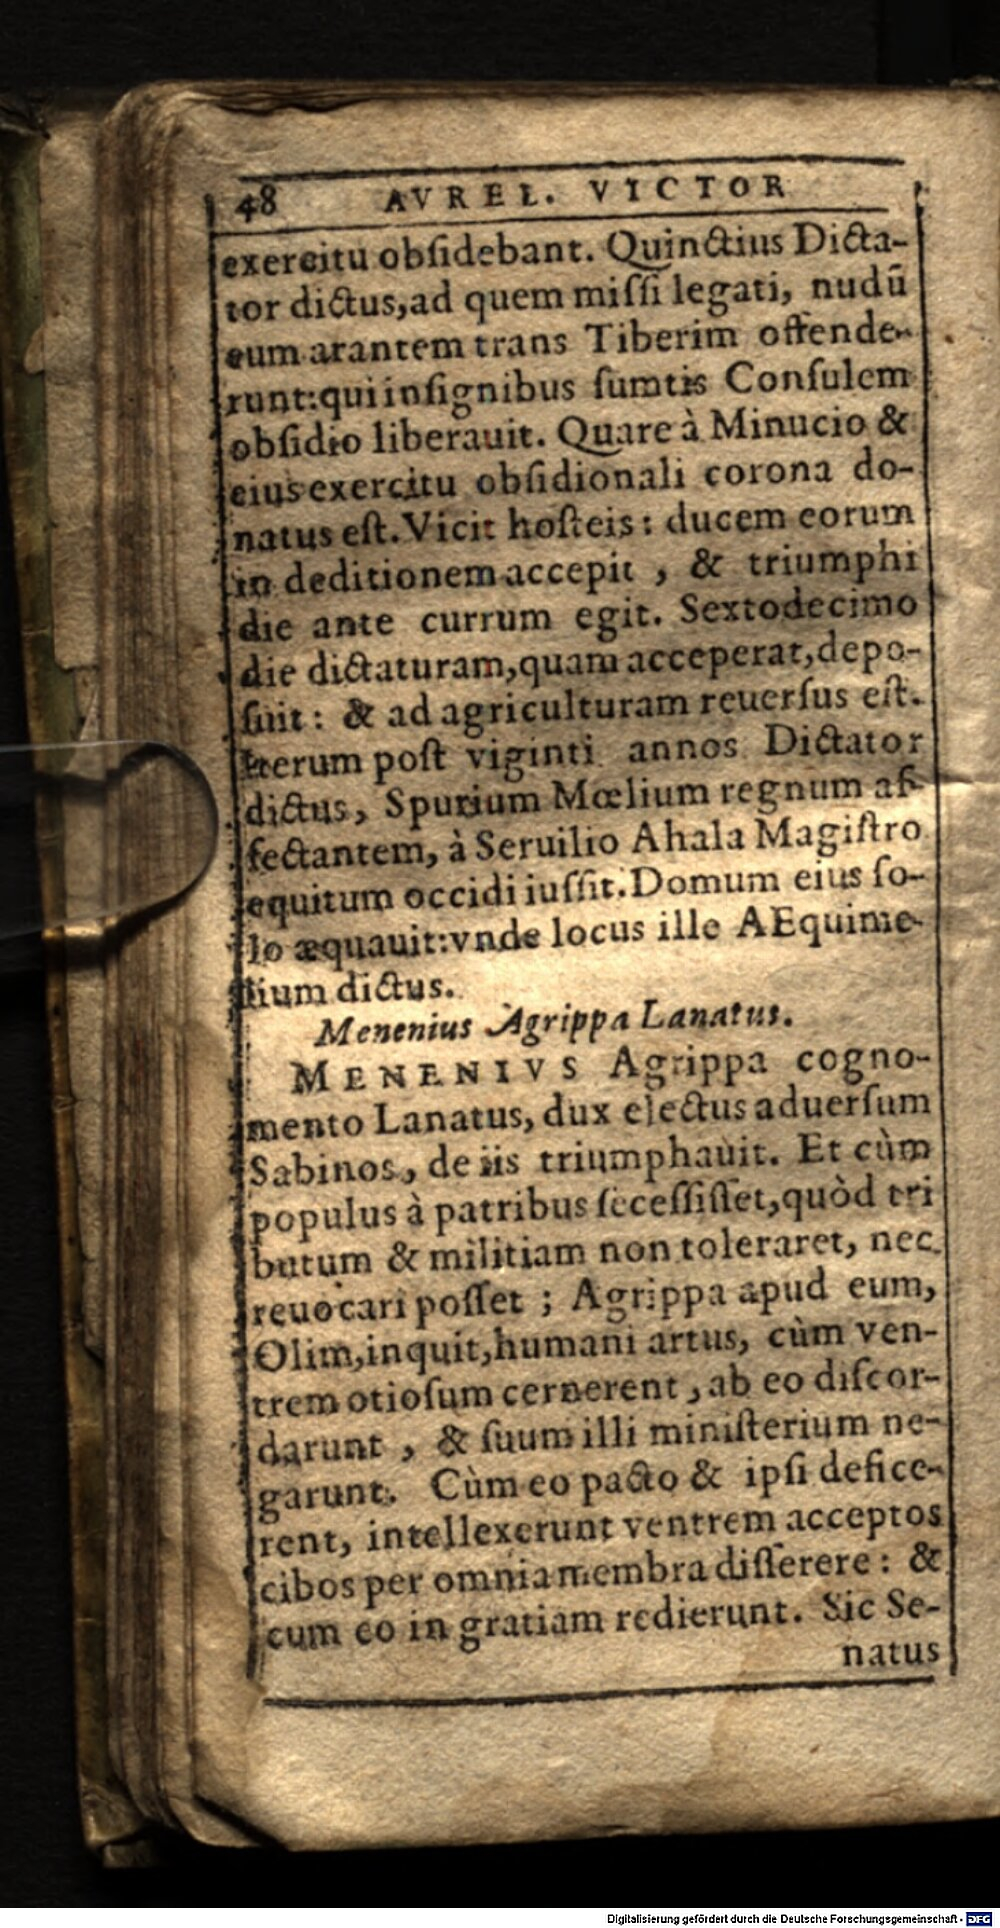 48 AVREL. VICTOR
exercitu obſidebant. Quinctius Dicta-
tor dictus, ad quem miſſi legati, nudū
eum arantem trans Tiberim oſtende-
runt: qui inſignibus ſumtis Conſulem
obſidio liberauit. Quare à Minucio &
eius exercitu obſidionali corona do-
natus eſt. Vicit hoſteis: ducem eorum
in deditionem accepit, & triumphi
die ante currum egit. Sextodecimo
die dictaturam, quam acceperat, depo-
ſuit: & ad agriculturam reuerſus eſt.
Iterum poſt viginti annos Dictator
dictus, Spurium Mœlium regnum af-
fectantem, à Seruilio Ahala Magiſtro
equitum occidi iuſſit. Domum eius ſo-
lo æquauit: vnde locus ille AEquime-
lium dictus.
Menenius Agrippa Lanatus.
MENENIVS Agrippa cogno-
mento Lanatus, dux electus aduerſum
Sabinos, de iis triumphauit. Et cùm
populus à patribus ſeceſſiſſet, quòd tri
butum & militiam non toleraret, nec
reuocari poſſet; Agrippa apud eum,
Olim, inquit, humani artus, cùm ven-
trem otioſum cernerent, ab eo diſcor-
darunt, & ſuum illi miniſterium ne-
garunt. Cùm eo pacto & ipſi defice-
rent, intellexerunt ventrem acceptos
cibos per omnia membra diſſerere: &
cum eo in gratiam redierunt. Sic Se-
natus
Digitalisierung gefördert durch die Deutsche Forschungsgemeinschaft - DFG